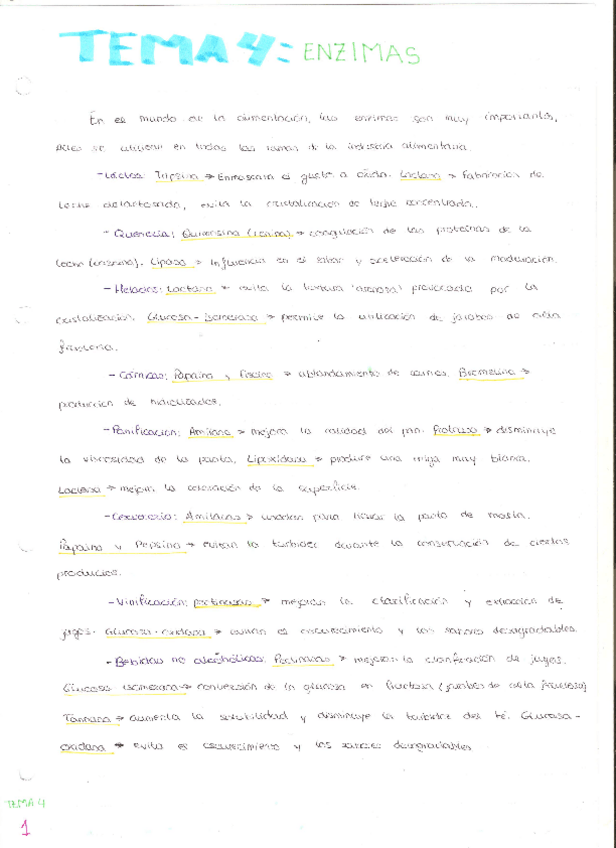 TEMA 4: ENZIMAS
En el mundo de la alimentación, las enzimas son muy importantes,
pues se utilizan en todas las ramas de la industria alimentaria.
-Lácteos: Tripsina → Enmascara el gusto a óxido. Lactasa → Fabricación de
leche delactosada, evita la cristalización de leche concentrada.
- Quesería: Quimosina (renina) → coagulación de las proteínas de la
leche (caseína). Lipasa → Influencia en el sabor y aceleración de la maduración.
- Helados: Lactasa → evita la textura "arenosa" provocada por la
cristalización. Glucosa-isomerasa → permite la utilización de jarabes de alta
fructosa.
- Cárnicas: Papaína y Ficina → ablandamiento de carnes. Bromelina →
producción de hidrolizados.
-Panificación: Amilasa → mejora la calidad del pan. Proteasa → disminuye
la viscosidad de la pasta. Lipoxidasa → produce una miga muy blanca.
Lactasa → mejora la coloración de la superficie.
-Cervecería: Amilasas → para licuar la pasta de malta.
Papaína y Pepsina → evitan la turbidez durante la conservación de ciertos
productos.
-Vinificación: pectinasas → mejoran la clarificación y extracción de
jugos. Glucosa-oxidasa → evitan el oscurecimiento y los sabores desagradables.
- Bebidas no alcohólicas: Pectinasas → mejoran la clarificación de jugos.
Glucosa isomerasa → conversión de la glucosa en fructosa (jarabes de alta fructosa)
Tannasa → aumenta la solubilidad y disminuye la turbidez del té. Glucosa-
oxidasa → evita el oscurecimiento y los sabores desagradables
TEMA 4
1